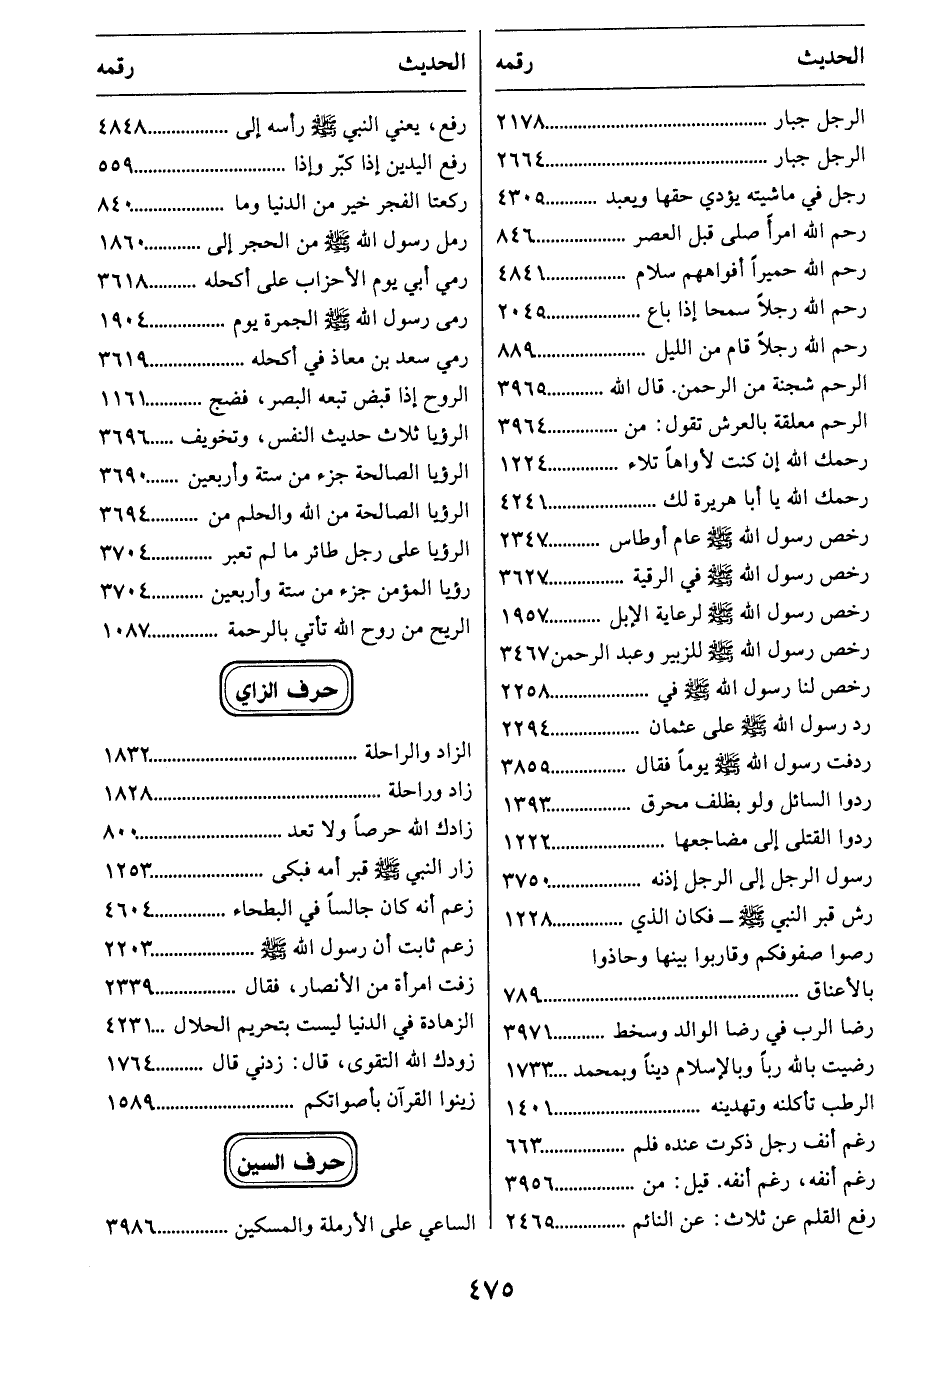 الحديث رقمه
الرجل جبار ......٢١٧٨
الرجل جبار ......٢٦٦٤
رجل في ماشيته يؤدي حقها ويعبد ......٤٣٠٥
رحم الله امرأً صلى قبل العصر ......٨٤٦
رحم الله حميراً أفواههم سلام ......٤٨٤١
رحم الله رجلاً سمحا إذا باع ......٢٠٤٥
رحم الله رجلاً قام من الليل ......٨٨٩
الرحم شجنة من الرحمن. قال الله ......٣٩٦٥
الرحم معلقة بالعرش تقول: من ......٣٩٦٤
رحمك الله إن كنت لأواهاً تلاء ......١٢٢٤
رحمك الله يا أبا هريرة لك ......٤٢٤١
رخص رسول الله ﷺ عام أوطاس ......٢٣٤٧
رخص رسول الله ﷺ في الرقية ......٣٦٢٧
رخص رسول الله ﷺ لرعاية الإبل ......١٩٥٧
رخص رسول الله ﷺ للزبير وعبد الرحمن ٣٤٦٧
رخص لنا رسول الله ﷺ في ......٢٢٥٨
رد رسول الله ﷺ على عثمان ......٢٢٩٤
ردفت رسول الله ﷺ يوماً فقال ......٣٨٥٩
ردوا السائل ولو بظلف محرق ......١٣٩٣
ردوا القتلى إلى مضاجعها ......١٢٢٢
رسول الرجل إلى الرجل إذنه ......٣٧٥٠
رش قبر النبي ﷺ ــ فكان الذي ......١٢٢٨
رصوا صفوفكم وقاربوا بينها وحاذوا
بالأعناق ......٧٨٩
رضا الرب في رضا الوالد وسخط ......٣٩٧١
رضيت بالله رباً وبالإسلام ديناً وبمحمد ...١٧٣٣
الرطب تأكلنه وتهدينه ......١٤٠١
رغم أنف رجل ذكرت عنده فلم ......٦٦٣
رغم أنفه، رغم أنفه. قيل: من ......٣٩٥٦
رفع القلم عن ثلاث: عن النائم ......٢٤٦٥
الحديث رقمه
رفع، يعني النبي ﷺ رأسه إلى ......٤٨٤٨
رفع اليدين إذا كبّر وإذا ......٥٥٩
ركعتا الفجر خير من الدنيا وما ......٨٤٠
رمل رسول الله ﷺ من الحجر إلى ......١٨٦٠
رمي أبي يوم الأحزاب على أكحله ......٣٦١٨
رمى رسول الله ﷺ الجمرة يوم ......١٩٠٤
رمي سعد بن معاذ في أكحله ......٣٦١٩
الروح إذا قبض تبعه البصر، فضج ......١١٦١
الرؤيا ثلاث حديث النفس، وتخويف .....٣٦٩٦
الرؤيا الصالحة جزء من ستة وأربعين ......٣٦٩٠
الرؤيا الصالحة من الله والحلم من ......٣٦٩٤
الرؤيا على رجل طائر ما لم تعبر ......٣٧٠٤
رؤيا المؤمن جزء من ستة وأربعين ......٣٧٠٤
الريح من روح الله تأتي بالرحمة ......١٠٨٧
حرف الزاي
الزاد والراحلة ......١٨٣٢
زاد وراحلة ......١٨٢٨
زادك الله حرصاً ولا تعد ......٨٠٠
زار النبي ﷺ قبر أمه فبكى ......١٢٥٣
زعم أنه كان جالساً في البطحاء ......٤٦٠٤
زعم ثابت أن رسول الله ﷺ ......٢٢٠٣
زفت امرأة من الأنصار، فقال ......٢٣٣٩
الزهادة في الدنيا ليست بتحريم الحلال ...٤٢٣١
زودك الله التقوى، قال: زدني قال ......١٧٦٤
زينوا القرآن بأصواتكم ......١٥٨٩
حرف السين
الساعي على الأرملة والمسكين ......٣٩٨٦
٤٧٥